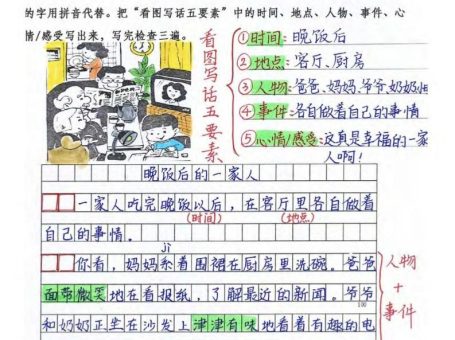 的字用拼音代替。把“看图写话五要素”中的时间、地点、人物、事件、心
情/感受写出来，写完检查三遍。
看图写话五要素
①时间：晚饭后
②地点：客厅、厨房
③人物：爸爸、妈妈、爷爷、奶奶
④事件：各自做着自己的事情
⑤心情/感受：这真是幸福的一家
人啊！
晚饭后的一家人
一家人吃完晚饭以后，在客厅里各自做着
(时间) (地点)
自己的事情。
jì
你看，妈妈系着围裙在厨房里洗碗。爸爸
面带微笑地在看报纸，了解最近的新闻。爷爷
100
和奶奶正坐在沙发上津津有味地看着有趣的电
人物
+
事件